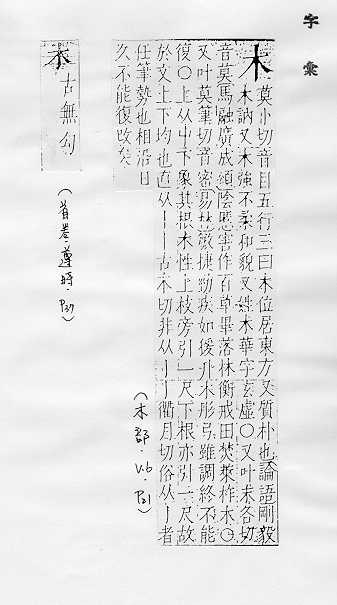 字彙
木 莫卜切音目五行三曰木位居東方又質朴也論語剛毅
木訥又木強不柔和貌又姓木華字玄虛○又叶末各切
音莫馬融廣成頌陰慝害作百草畢落林衡戒田焚萊柞木○
又叶莫筆切音密易林敏捷勁疾如猿升木彤弓雖調終不能
復○上从屮下象其根木性上枝旁引一尺下根亦引一尺故
於文上下均也直从丨丨古本切非从亅亅衢月切俗从亅者
任筆勢也相沿日
久不能復改矣
(木部·V.6·P.21)
木 古無勾
(首卷·遵時·P.37)